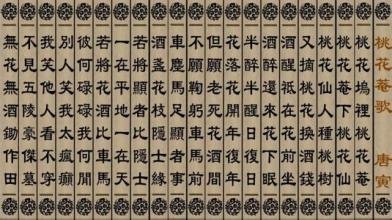 桃花菴歌 唐寅
桃花塢裡桃花菴
桃花菴下桃花仙
桃花仙人種桃樹
又摘桃花換酒錢
酒醒祗在花前坐
酒醉還來花下眠
半醉半醒日復日
花落花開年復年
但願老死花酒間
不願鞠躬車馬前
車塵馬足顯者事
酒盞花枝隱士緣
若將顯者比隱士
一在平地一在天
若將花酒比車馬
彼何碌碌我何閒
別人笑我太瘋癲
我笑他人看不穿
不見五陵豪傑墓
無花無酒鋤作田